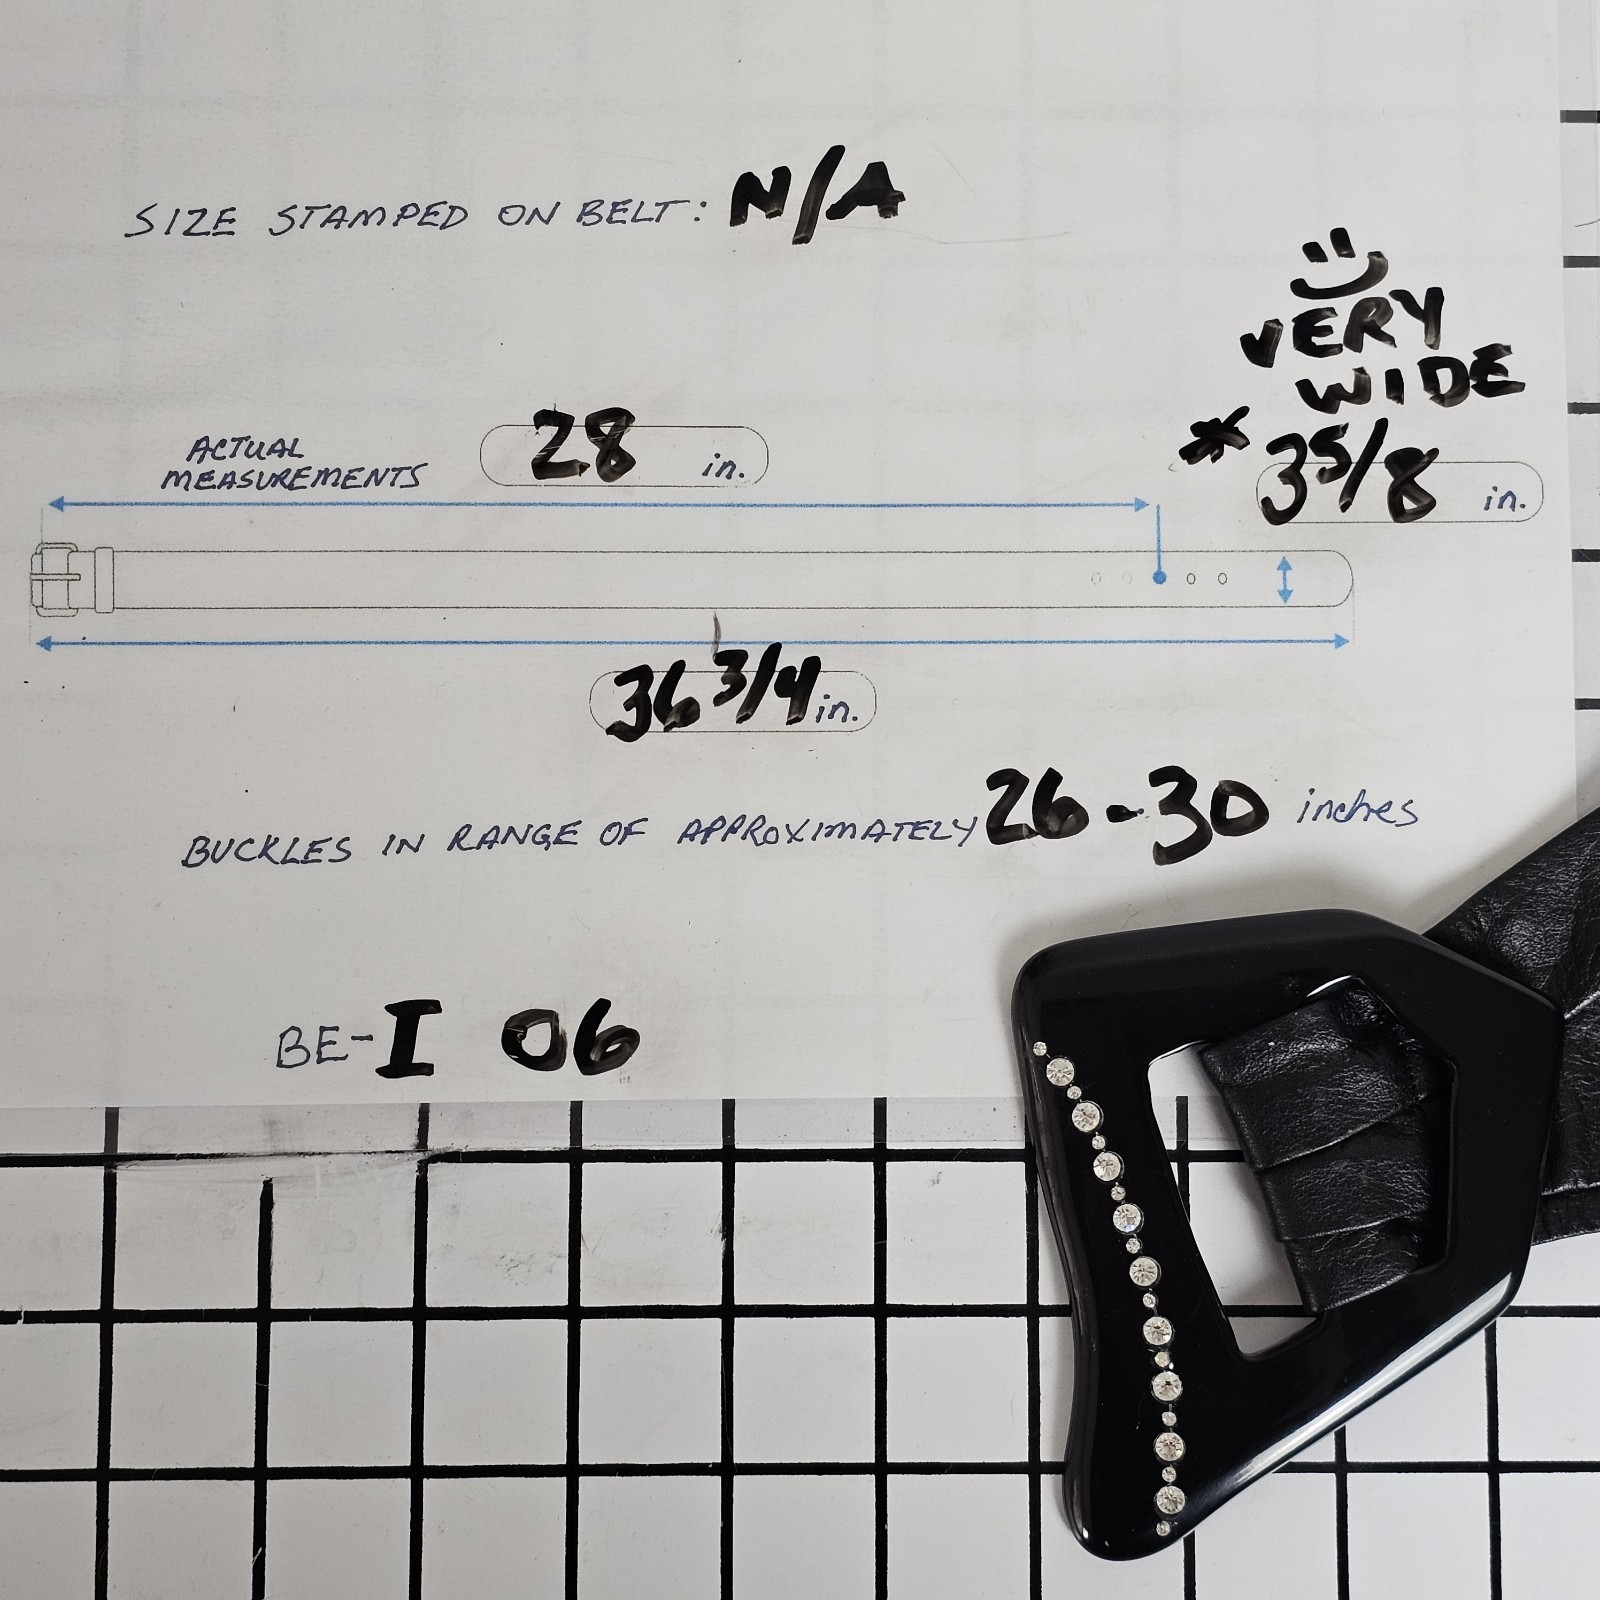 SIZE STAMPED ON BELT: N/A
VERY
WIDE
* 3 5/8 in.
ACTUAL
MEASUREMENTS
28 in.
36 3/4 in.
BUCKLES IN RANGE OF APPROXIMATELY 26-30 inches
BE-I 06